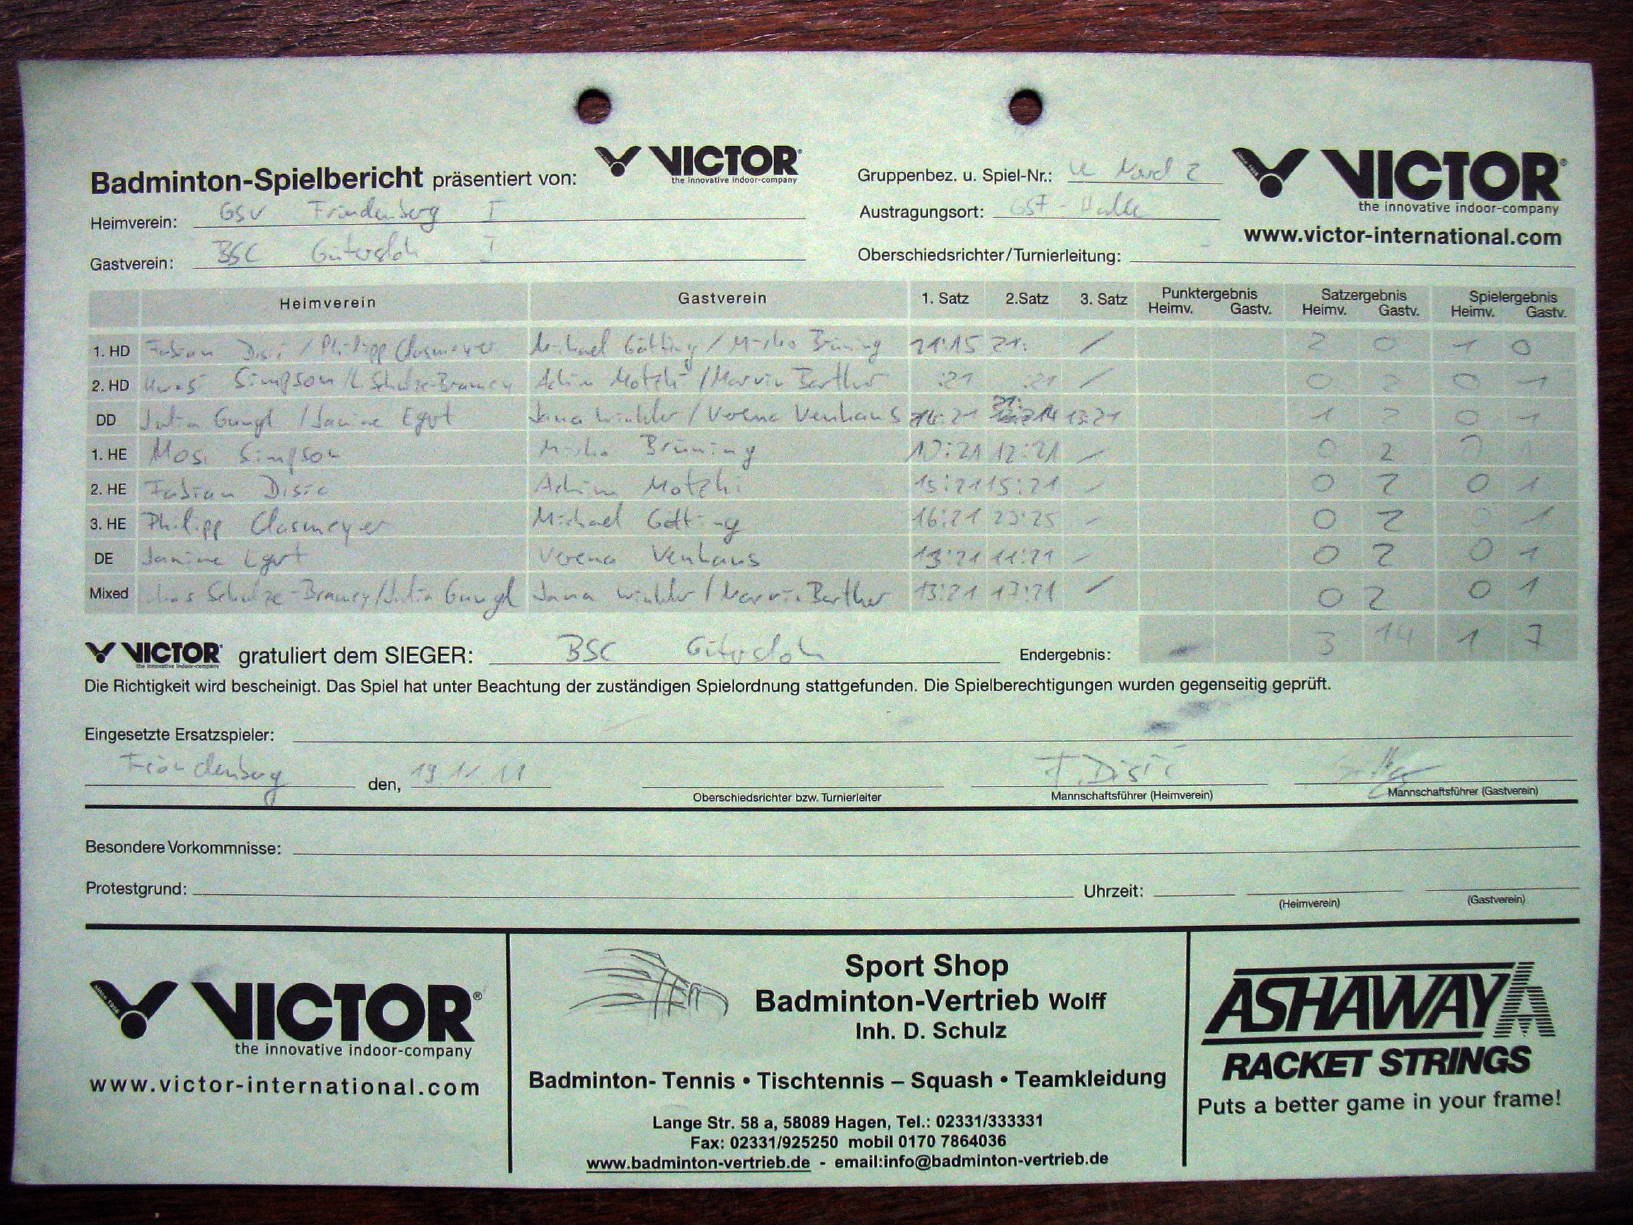 VICTOR®
the innovative indoor-company
Badminton-Spielbericht präsentiert von:
Gruppenbez. u. Spiel-Nr.: 2
VICTOR®
the innovative indoor-company
www.victor-international.com
Heimverein: GSV Fröndenberg I
Austragungsort: GSF - Halle
Gastverein: BSC Gütersloh I
Oberschiedsrichter/Turnierleitung:
Heimverein Gastverein 1. Satz 2.Satz 3. Satz Punktergebnis Satzergebnis Spielergebnis
Heimv. Gastv. Heimv. Gastv. Heimv. Gastv.
1. HD Fabian Disic / Philipp Clasmeyer Michael Götting / Mirko Brüning 21:15 21: / 2 0 1 0
2. HD Simpson / Schulze-Bramey Achim Motzki / Marvin Barther :21 :21 / 0 2 0 1
DD Julia Gungl / Janine Egert Jana Winkler / Verena Venhaus 14:21 21:14 13:21 1 2 0 1
1. HE Mosi Simpson Mirko Brüning 10:21 12:21 / 0 2 0 1
2. HE Fabian Disic Achim Motzki 15:21 15:21 / 0 2 0 1
3. HE Philipp Clasmeyer Michael Götting 16:21 23:25 / 0 2 1
DE Janine Egert Verena Venhaus 13:21 11:21 / 0 2 0 1
Mixed Schulze-Bramey/Julia Gungl Jana Winkler / Marvin Barther 13:21 17:21 / 0 2 0 1
VICTOR® gratuliert dem SIEGER: BSC Gütersloh Endergebnis: 3 14 1 7
the innovative indoor-company
Die Richtigkeit wird bescheinigt. Das Spiel hat unter Beachtung der zuständigen Spielordnung stattgefunden. Die Spielberechtigungen wurden gegenseitig geprüft.
Eingesetzte Ersatzspieler:
Fröndenberg den, 19.11.11 F. Disic
Oberschiedsrichter bzw. Turnierleiter Mannschaftsführer (Heimverein) Mannschaftsführer (Gastverein)
Besondere Vorkommnisse:
Protestgrund: Uhrzeit:
(Heimverein) (Gastverein)
VICTOR®
the innovative indoor-company
www.victor-international.com
Sport Shop
Badminton-Vertrieb Wolff
Inh. D. Schulz
Badminton- Tennis • Tischtennis – Squash • Teamkleidung
Lange Str. 58 a, 58089 Hagen, Tel.: 02331/333331
Fax: 02331/925250 mobil 0170 7864036
www.badminton-vertrieb.de - email:info@badminton-vertrieb.de
ASHAWAY
RACKET STRINGS
Puts a better game in your frame!